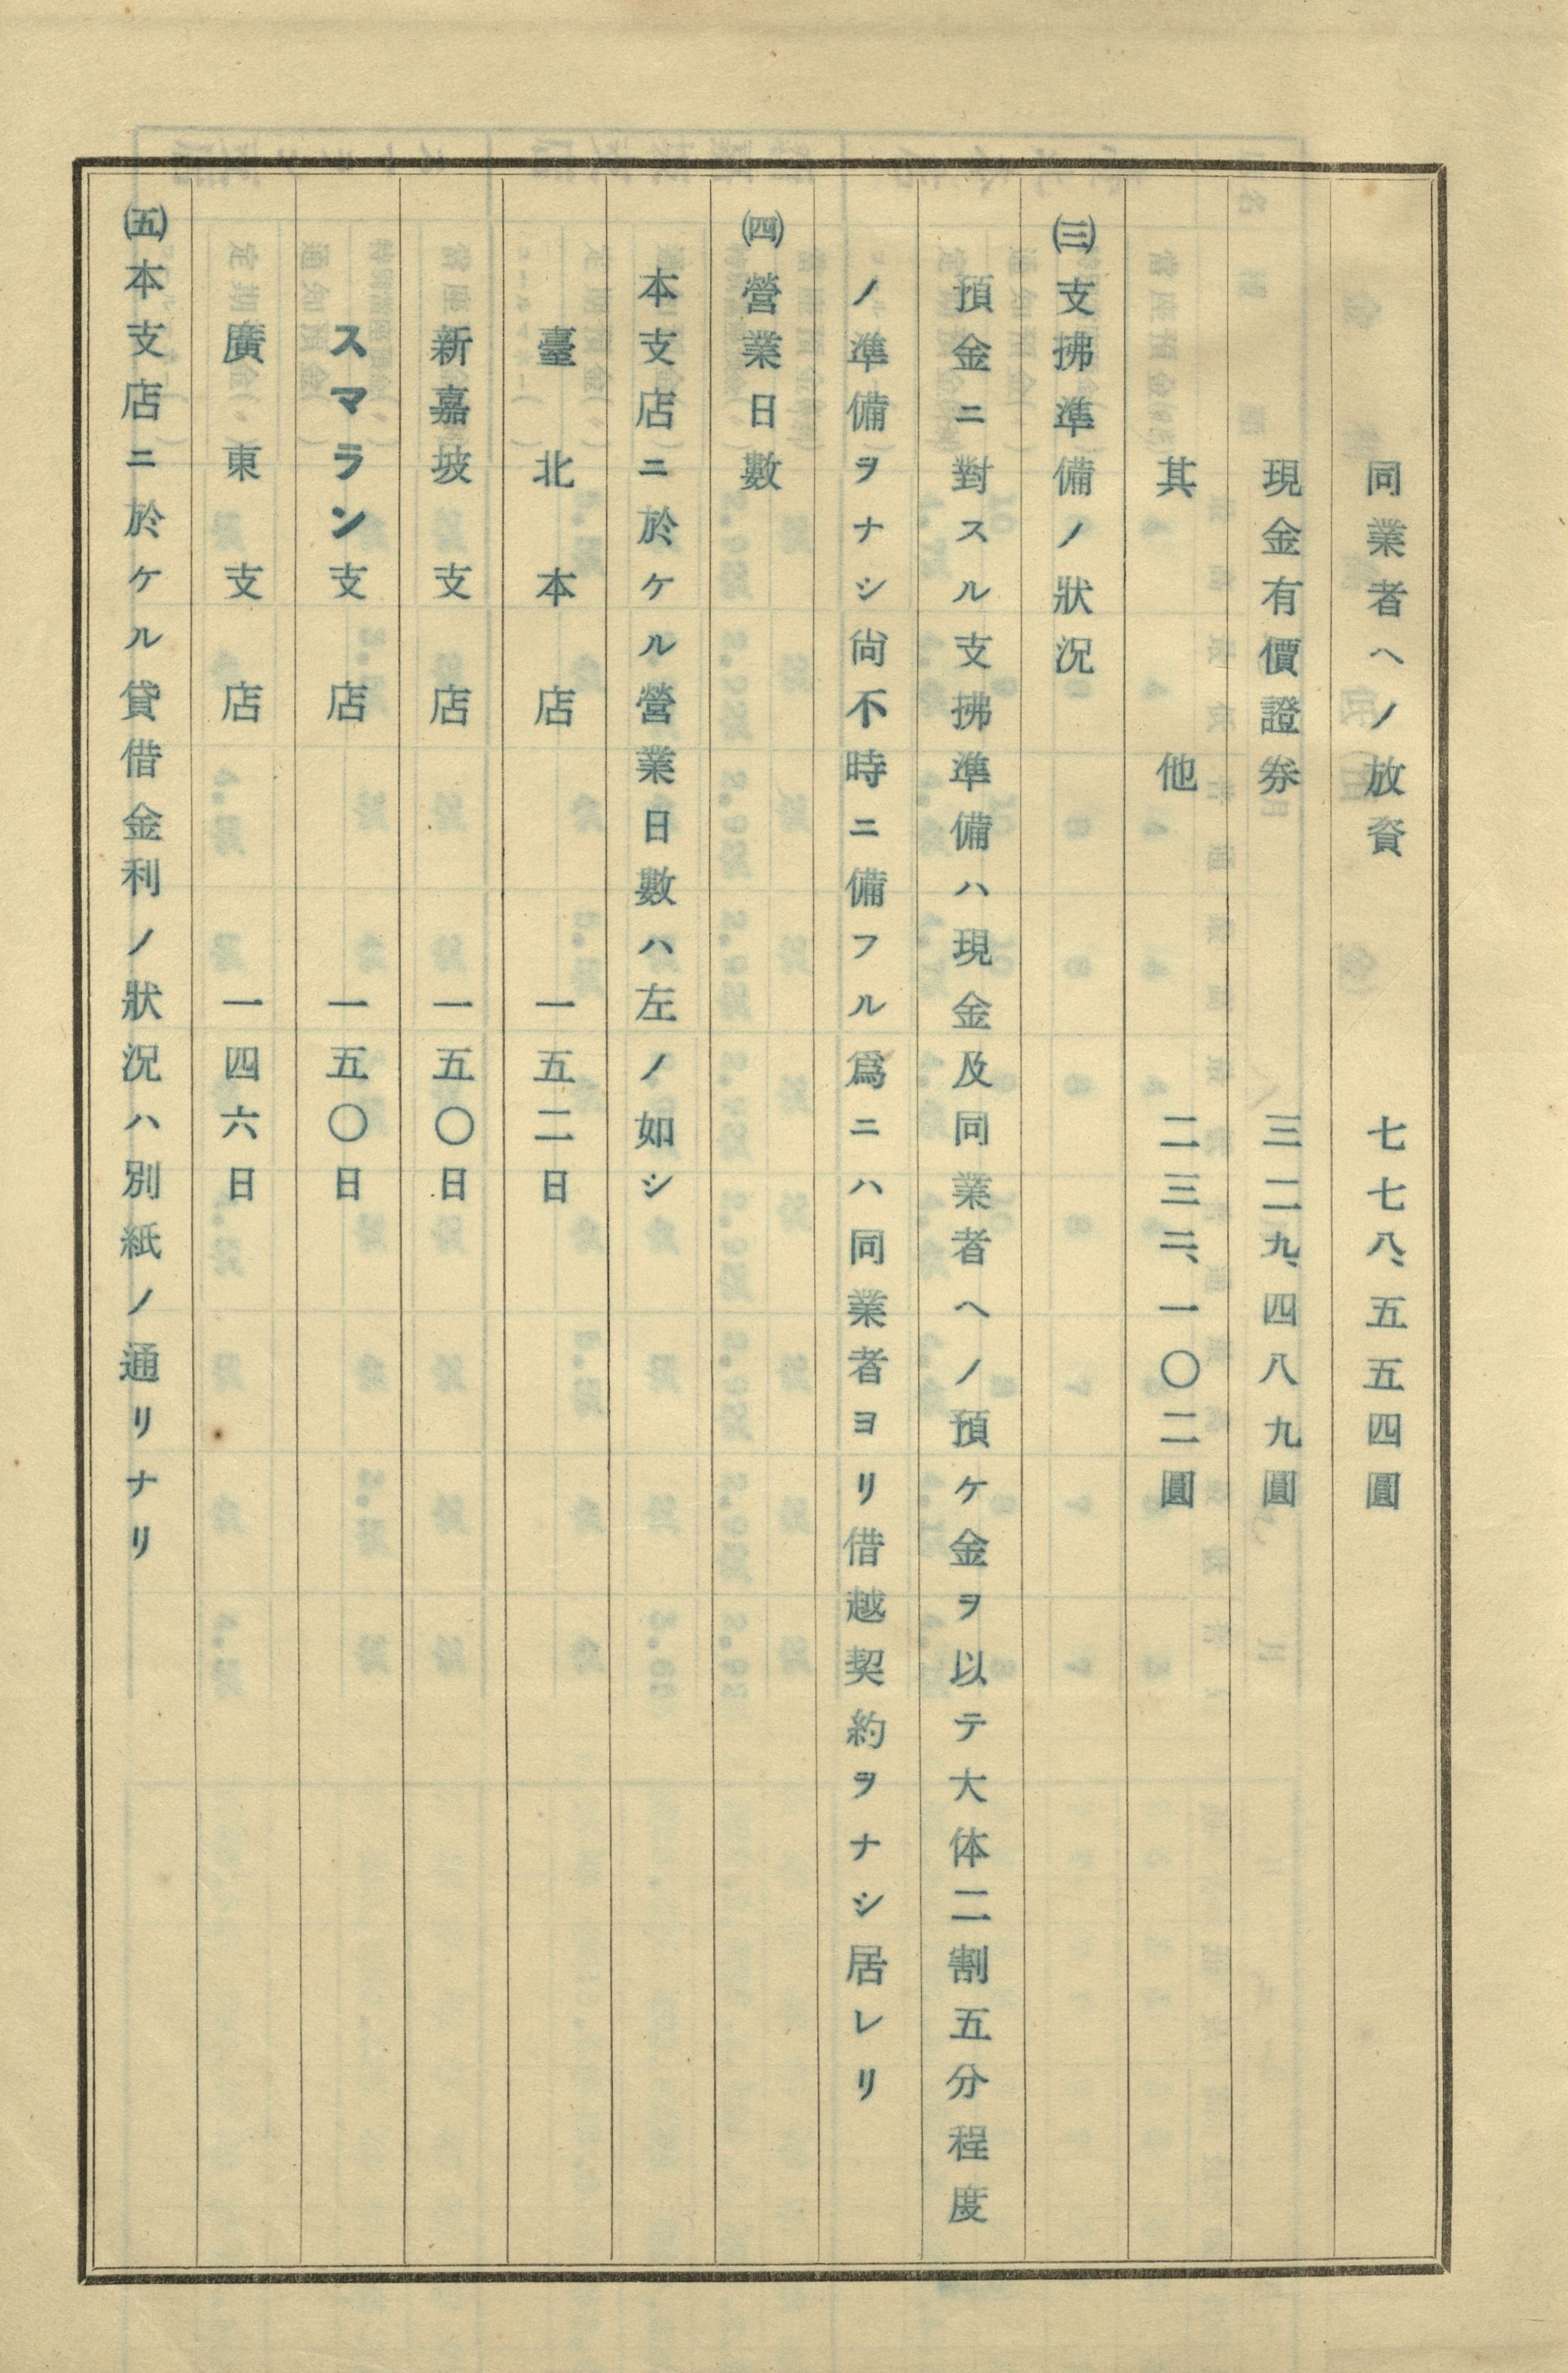 同業者ヘノ放資 七七八、五五四圓
現金有價證券 三二九、四八九圓
其他 二三二、一〇二圓
㈢支拂準備ノ狀況
預金ニ對スル支拂準備ハ現金及同業者ヘノ預ケ金ヲ以テ大体二割五分程度
ノ準備ヲナシ尙不時ニ備フル爲ニハ同業者ヨリ借越契約ヲナシ居レリ
㈣營業日數
本支店ニ於ケル營業日數ハ左ノ如シ
臺北本店 一五二日
新嘉坡支店 一五〇日
スマラン支店 一五〇日
廣東支店 一四六日
㈤本支店ニ於ケル貸借金利ノ狀況ハ別紙ノ通リナリ